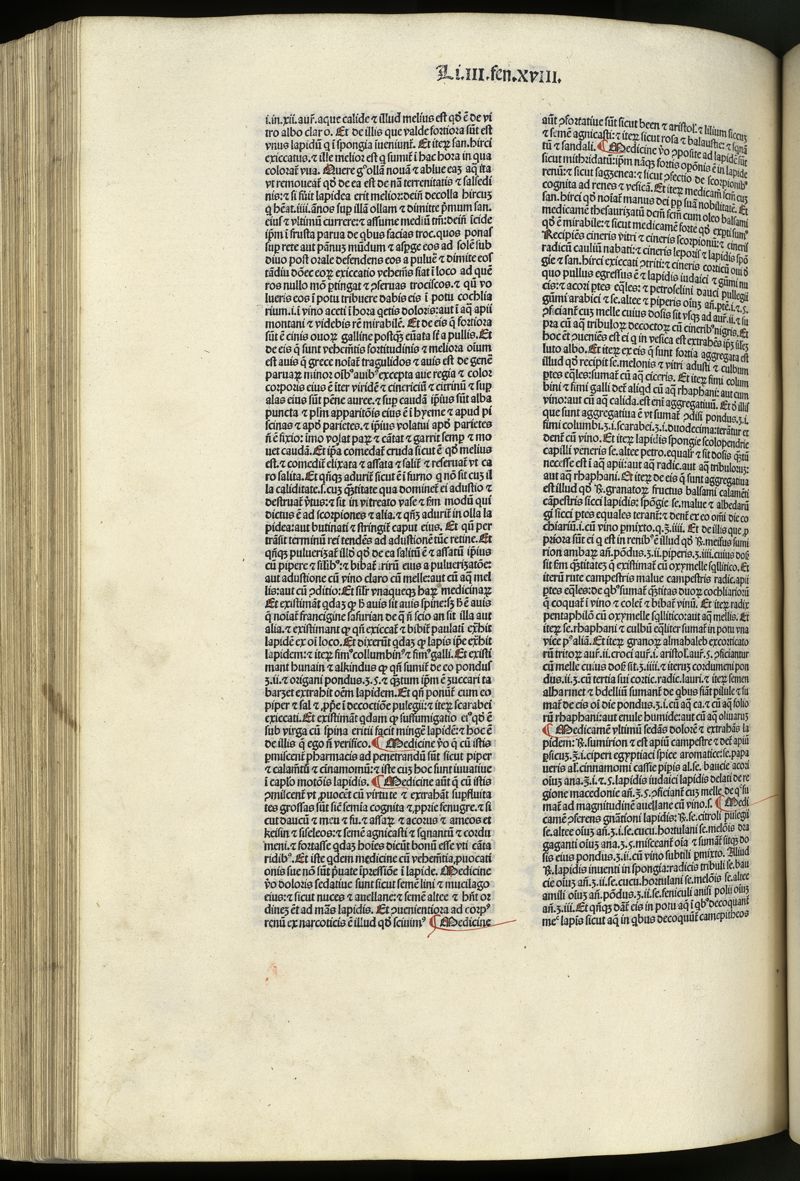 Li.III.fen.XVIII.
i.in.xii.aur̃.aque calide ⁊ illud melius est qđ ẽ de vi
tro albo claro. Et de illis que valde fortiora sũt est
vnus lapidũ q ĩ spongia ĩueniunt̃. Et iteꝝ san.hirci
exiccatus.⁊ ille melior est q sumit̃ ĩ hac hora in qua
colorat̃ vua. Quere gº ollã nouã ⁊ ablue eaꝫ aq̃ ita
vt remoueat̃ qđ de ea est de nã terrenitatis ⁊ salsedi
nis:⁊ si fũit lapidea erit melior:dein̄ decolla hircuꝫ
q hẽat.iiii.ãnos sup illã ollam ⁊ dimitte p̃mum san.
eius ⁊ vltimũ currere:⁊ assume mediũ tm̃:dein̄ ĩcide
ip̃m ĩ frusta parua de qbus facias troc.quos ponas
sup rete aut pãnuꝫ mũdum ⁊ asp̃ge eos ad solẽ sub
diuo post orale defendens eos a puluẽ ⁊ dimite eos
tãdiu dõec eoꝝ exiccatio vehem̃s fiat ĩ loco ad quẽ
ros nullo mõ p̃tingat ⁊ ꝯseruas trociscos.⁊ qñ vo
lueris eos ĩ potu tribuere dabis eis ĩ potu cochlia
rium.i.ĩ vino aceti ĩ hora qetis doloris:aut ĩ aq̃ apii
montani ⁊ videbis rẽ mirabilẽ. Et de eis q̃ fortiora
sũt ẽ cinis ouoꝝ galline postꝗꝫ eũata st̃ a pullis. Et
de eis q̃ sunt vehem̃tis fortitudinis ⁊ meliora oĩum
est auis q̃ grece noĩat̃ tragulidos ⁊ auis est de genẽ
paruaꝝ minor oĩbꝰ auibꝰ excepta aue regia ⁊ color
corporis eius ẽ iter viridẽ ⁊ cinericiũ ⁊ citrinũ ⁊ sup
alas eius sũt pẽne auree.⁊ sup caudã ip̃ius sũt alba
puncta ⁊ plm̃ apparitõis eius ẽ ĩ hyeme ⁊ apud pi
scinas ⁊ apđ parietes.⁊ ip̃ius volatui apđ parietes
ñ ẽ fixio: imo volat paꝝ ⁊ cãtat ⁊ garrit semp ⁊ mo
uet caudã. Et ip̃a comedat̃ cruda sicut ẽ qđ melius
est.⁊ comedit̃ elixata ⁊ assata ⁊ salit̃ ⁊ reseruat̃ vt ca
ro salita. Et qñqꝫ adurit̃ sicut ẽ ĩ furno q nõ sit cuꝫ il
la caliditate.s.cuꝫ q̃titate qua dominet̃ ei adustio ⁊
destruat̃ ṽtus:⁊ sit in vitreato vase ⁊ fm̃ modũ qui
dictus ẽ ad scorpiones ⁊ alia.⁊ qñꝫ adurit̃ in olla la
pidea:aut butinati ⁊ stringit̃ caput eius. Et qñ per
trãsit terminũ rei tendẽs ad adustionẽ tũc retine. Et
qñqꝫ puluerizat̃ illđ qđ de ea salitũ ẽ ⁊ assatũ ip̃ius
cũ pipere ⁊ sil̃ibꝰ:⁊ bibat̃ xirũ eius a puluerizatõe:
aut adustione cũ vino claro cũ melle:aut cũ aq̃ mel
lis:aut cũ ꝯditio: Et sil̃r vnaqueqꝫ haꝝ medicinaꝝ
Et existimãt qdaꝫ qp h̃ auis sit auis spine:sꝫ h̃ ẽ auis
q̃ noĩat̃ francigine safurian de q̃ ñ scio an sit illa aut
alia.⁊ existimant qp qñ exiccat̃ ⁊ bibit̃ paulatĩ exhit
lapidẽ ex oĩ loco. Et dixerũt qdaꝫ qp lapis ip̃e exhit
lapidem:⁊ iteꝝ fimꝰ collumbinꝰ ⁊ fimꝰ galli. Et existi
mant hunain ⁊ alkindus qp qñ sumit̃ de eo pondus
ʒ.ii.⁊ origani pondus.ʒ.s̄.⁊ q̃tum ip̃m ẽ zuccari ta
barzet extrahit oẽm lapidem. Et qñ ponũt̃ cum eo
piper ⁊ sal ⁊ ꝓp̃e ĩ decoctiõe pulegii:⁊ iteꝝ scarabei
exiccati. Et existimãt qdam qp suffumigatio eiꝰ qđ ẽ
sub virga cũ spina eritii facit mingẽ lapidẽ:⁊ hoc ẽ
de illis q̃ ego ñ verifico. ¶ Medicine ṽo q̃ cũ istis
pmiscent̃ pharmacis ad penetrandũ sũt sicut piper
⁊ calam̃tũ ⁊ cinamomũ:⁊ iste cuꝫ hoc sunt iuuatiue
ĩ caplo motõis lapidis. ¶ Medicine aũt q̃ cũ istis
ꝯmiscent̃ vt ꝓuocet̃ cũ virtute ⁊ extrahãt supfluita
tes grossas sũt sic̃ semĩa cognita ⁊ ꝓprie fenugre.⁊ si
cut daucũ ⁊ meu ⁊ fu.⁊ assaꝝ ⁊ acorus ⁊ ameos et
keisin ⁊ siseleos:⁊ semẽ agnicasti ⁊ sq̃nantũ ⁊ cordu
meni.⁊ fortasse qdaꝫ hoĩes dicũt bonũ esse vti cãta
ridibꝰ. Et iste qdem medicine cũ vehem̃tia ꝓuocati
onis sue nõ sũt p̃uate ĩpressiõe ĩ lapide. Medicine
ṽo doloris sedatiue sunt sicut semẽ lini ⁊ mucilago
eius:⁊ sicut nuces ⁊ auellane:⁊ semẽ altee ⁊ hñt or
dineꝫ ẽt ad mãs lapidis. Et ꝯuenientiora ad corpꝰ
renũ ex narcoticis ẽ illud qđ sciuimꝰ ¶ Medicine
aũt ꝯfortatiue sũt sicut been ⁊ aristol̃.⁊ lilium siccuꝫ
⁊ semẽ agnicasti:⁊ iteꝝ sicut rosa ⁊ balaustie:⁊ sq̃nã
tũ ⁊ sandali. ¶ Medicine ṽo ꝯposite ad lapidẽ sũt
sicut mithridatũ:ip̃m nãqꝫ fortis oꝑonis ẽ in lapide
renũ:⁊ sicut sagzenea:⁊ sicut ꝯfectio de scorpionibꝰ
cognita ad renes ⁊ vesicã. Et iteꝝ medicam̃ sciñ cuꝫ
san.hirci qđ noĩat̃ manus dei pp suã nobilitatẽ. Et
medicamẽ thesaurizatũ dem̃ sciñ cum oleo balsami
qđ ẽ mirabile:⁊ sicut medicamẽ forte qđ expti sumꝰ
Recipiẽs cineris vitri ⁊ cineris scorpionũ:⁊ cineris
radicũ cauliũ nabati:⁊ cineris leporis ⁊ lapidis spõ
gie ⁊ san.hirci exiccati ꝯtriti:⁊ cineris corticũ oui đ
quo pullus egressus ẽ ⁊ lapidis iudaici ⁊ gũmi nu
cis:⁊ acori ptes eq̃les:⁊ petroselini dauci pullegii
gũmi arabici ⁊ se.altee ⁊ piperis oĩuꝫ añ.ptẽ.i.⁊.s̄.
ꝯficiant̃ cuꝫ melle cuius dosis sit vsqꝫ ad aur̃.ii.⁊ su
pra cũ aq̃ tribuloꝝ decoctoꝝ cũ cineribꝰ nigris. Et
hoc ẽt ꝯueniẽs est ei q̃ in vesica est extrahẽs ip̃ꝫ siẽs
luto albo. Et iteꝝ ex eis q̃ sunt fortia aggregata est
illud qđ recipit se.melonis ⁊ vitri adusti ⁊ culbum
ptes eq̃les:sumat̃ cũ aq̃ ciceris. Et iteꝝ fimi colum
bini ⁊ fimi galli det̃ aliqđ cũ aq̃ rhaphani:aut cum
vino:aut cũ aq̃ calida.est eni̅ aggregatiuũ. Et đ illis
que sunt aggregatiua ẽ vt sumat̃ ꝯdisii pondus.ʒ.i.
fimi columbi.ʒ.i.scarabei.ʒ.i.duodecima:terãtur et
dent̃ cũ vino. Et iteꝝ lapidis spongie scolopendrie
capilli veneris se.altee petro.equal̃r ⁊ sit dosis q̃tũ
necesse est ĩ aq̃ apii:aut aq̃ radic.aut aq̃ tribuloruꝫ:
aut aq̃ rhaphani. Et iteꝝ de eis q̃ sunt aggregatiua
est illud qđ ℞.granatoꝝ fructus balsami calameti
cãpestris sicci lapidis: spõgie se.malue ⁊ albedarũ
gi sicci ptes equales terant̃:⁊ dent̃ ex eo oĩni die co
chiariũ.i.cũ vino pmixto.q.ʒ.iiii. Et de illis que p
priora sũt ei q̃ est in renibꝰ ẽ illud qđ ℞.meisus sumi
rion ambaꝝ añ.põdus.ʒ.ii.piperis.ʒ.iiii.cuius dos̃
sit fm̃ q̃titateꝫ q̃ existimat̃ cũ oxymelle sq̃llitico. Et
iterũ rute campestris malue campestris radic.apii
ptes eq̃les:de qbꝰ sumat̃ q̃titas duoꝝ cochliarioruꝫ
q̃ coquat̃ ĩ vino ⁊ colet̃ ⁊ bibat̃ vinũ. Et iteꝝ radix
pentaphilõ cũ oxymelle sq̃llitico:aut aq̃ mellis. Et
iteꝝ se.rhaphani ⁊ culbũ eq̃liter sumat̃ in potu vna
vice pꝰ aliũ. Et iteꝝ granoꝝ almahaleb excorticato
rũ tritoꝝ aur̃.ii.croci aur̃.i.aristol̃.aur̃.s̄.ꝯficiantur
cũ melle cuius dos̃ sit.ʒ.iiii.⁊ iteruꝫ cordumeni pon
dus.ii.ʒ.cũ tertia sui cortic.radic.lauri.⁊ iteꝝ semen
alharinet ⁊ bdelliũ sumant̃ de qbus siãt pillule ⁊ su
mat̃ de eis oĩ die pondus.ʒ.i.cũ aq̃ ca.⁊ cũ aq̃ folio
rũ rhaphani:aut enule humide:aut cũ aq̃ oliuaruꝫ
¶ Medicamẽ vltimũ sedãs dolorẽ ⁊ extrahẽs la
pidem: ℞.sumirion ⁊ est apiũ campestre ⁊ det̃ apiũ
psicuꝫ.ʒ.i.ciperi egyptiaci spice aromatice:se.papa
ueris al.cinnamomi cassie pipis al.se. baucie acori
oĩuꝫ ana.ʒ.i.⁊.s̄.lapidis iudaici lapidis delati de re
gione macedonie añ.ʒ.s̄.ꝯficiant̃ cuꝫ melle de q̃ su
mat̃ ad magnitudinẽ auellane cũ vino.s. ¶ Medi
camẽ ꝯserens gnãtioni lapidis: ℞.se.citroli pulegii
se.altee oĩuꝫ añ.ʒ.i.se.cucu.hortulani se.melõis dra
gaganti oĩuꝫ ana.ʒ.s̄.misceant̃ oĩa ⁊ sumat̃ sitqꝫ do
sis eius pondus.ʒ.ii.cũ vino subtili pmixto. Aliud
℞.lapidis inuenti in spongia:radicis tribuli se.bau
cie oĩuꝫ añ.ʒ.ii.se.cucu.hortulani se.melõis se.altee
amili oĩuꝫ añ.põdus.ʒ.ii.se.feniculi anisi polii oĩuꝫ
añ.ʒ.iii. Et qñqꝫ dat̃ eis in potu aq̃ ĩ qbꝰ decoquant̃
meꝰ lapis sicut aq̃ in qbus decoquũt̃ camepitheos